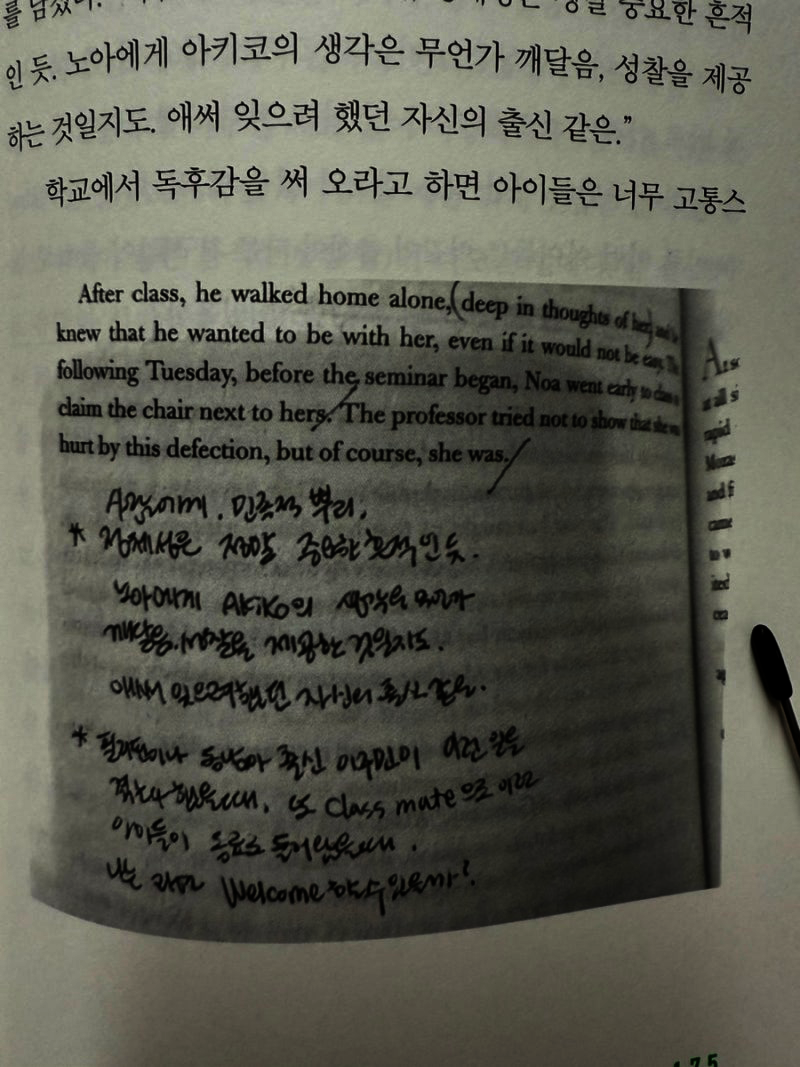 를 남겼다.
중요한 흔적
인 듯. 노아에게 아키코의 생각은 무언가 깨달음, 성찰을 제공
하는 것일지도. 애써 잊으려 했던 자신의 출신 같은.”
학교에서 독후감을 써 오라고 하면 아이들은 너무 고통스
After class, he walked home alone, (deep in thoughts of her,
knew that he wanted to be with her, even if it would not be easy. The
following Tuesday, before the seminar began, Noa went early to
claim the chair next to hers. The professor tried not to show that she was
hurt by this defection, but of course, she was.
민족적 뿌리.
* 정체성은 정말 중요한 흔적인 듯.
노아에게 Akiko의 생각은 무언가
깨달음, 성찰을 제공하는 것일지도.
애써 잊으려 했던 자신의 출신 같은.
* 동남아 출신 이주민이
Class mate으로
아이들이 동료로 들어왔을 때.
나는 과연 Welcome 할 수 있을까?
175